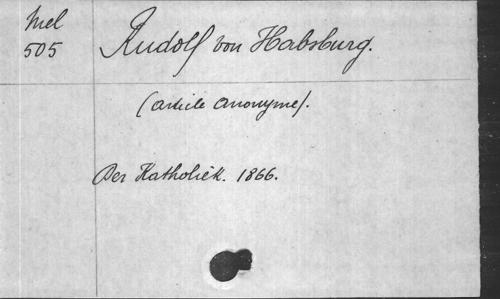 Mel
505
Rudolf von Habsburg.
(article anonyme).
Der Katholiek. 1866.